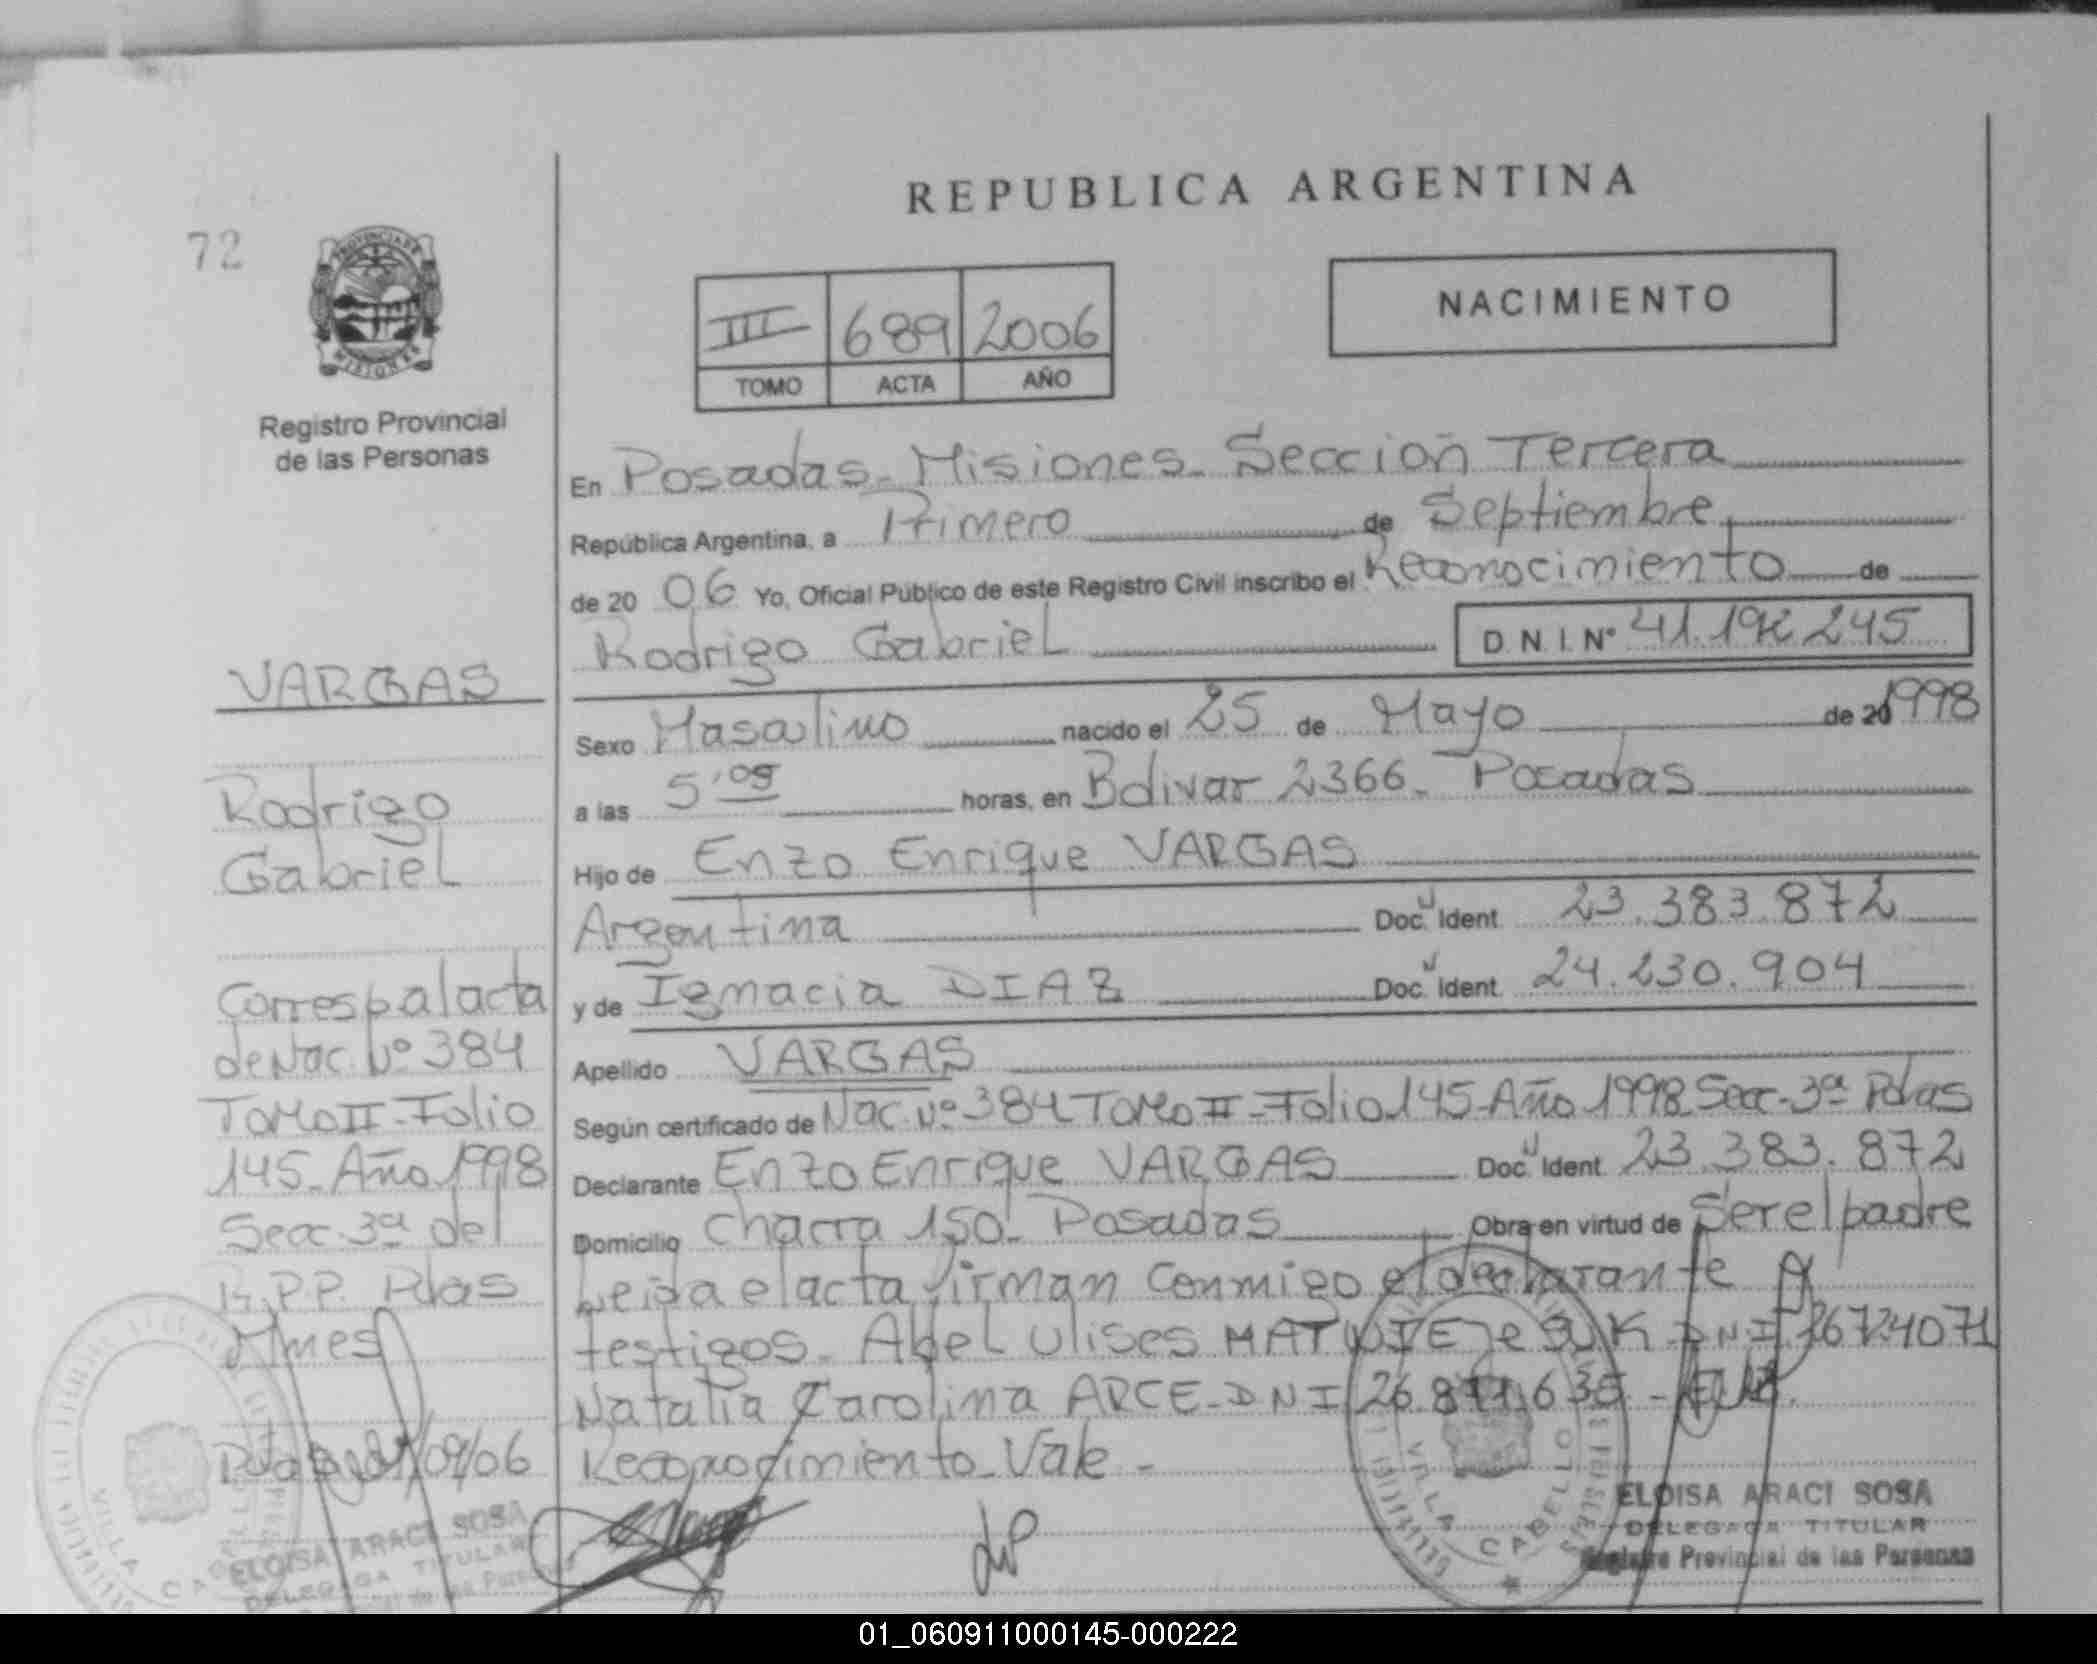 REPUBLICA ARGENTINA
72
PROVINCIA DE
MISIONES
NACIMIENTO
III 689 2006
TOMO ACTA AÑO
Registro Provincial
de las Personas
En Posadas - Misiones - Sección Tercera
República Argentina, a Primero de Septiembre
de 20 06 Yo, Oficial Público de este Registro Civil inscribo el Reconocimiento de
Rodrigo Gabriel D.N.I.Nº 41.192.245
Sexo Masculino nacido el 25 de Mayo de 20 1998
a las 5'05 horas, en Bolivar 2366 - Posadas
Hijo de Enzo Enrique VARGAS
Argentina Doc. Ident. 23.383.872
y de Ignacia DIAZ Doc. Ident. 24.230.904
Apellido VARGAS
Según certificado de Nac. Nº 384 Tomo II - Folio 145 - Año 1998 Secc. 3ª Pdas
Declarante Enzo Enrique VARGAS Doc. Ident. 23.383.872
Domicilio Chacra 150 - Posadas Obra en virtud de Ser el padre
Leida el acta firman conmigo el declarante
testigos - Abel Ulises DNI 26724071
Natalia Carolina ARCE - DNI 26.871.635 -
Reconocimiento - Vale -
VARGAS
Rodrigo
Gabriel
Corresp al acta
de Nac. Nº 384
Tomo II - Folio
145 - Año 1998
Secc. 3ª del
R.P.P. Pdas
Mnes
/09/06
ELOISA ARACI SOSA
DELEGADA TITULAR
VILLA CABELLO
ELOISA ARACI SOSA
DELEGADA TITULAR
Registro Provincial de las Personas
VILLA CABELLO
01_060911000145-000222